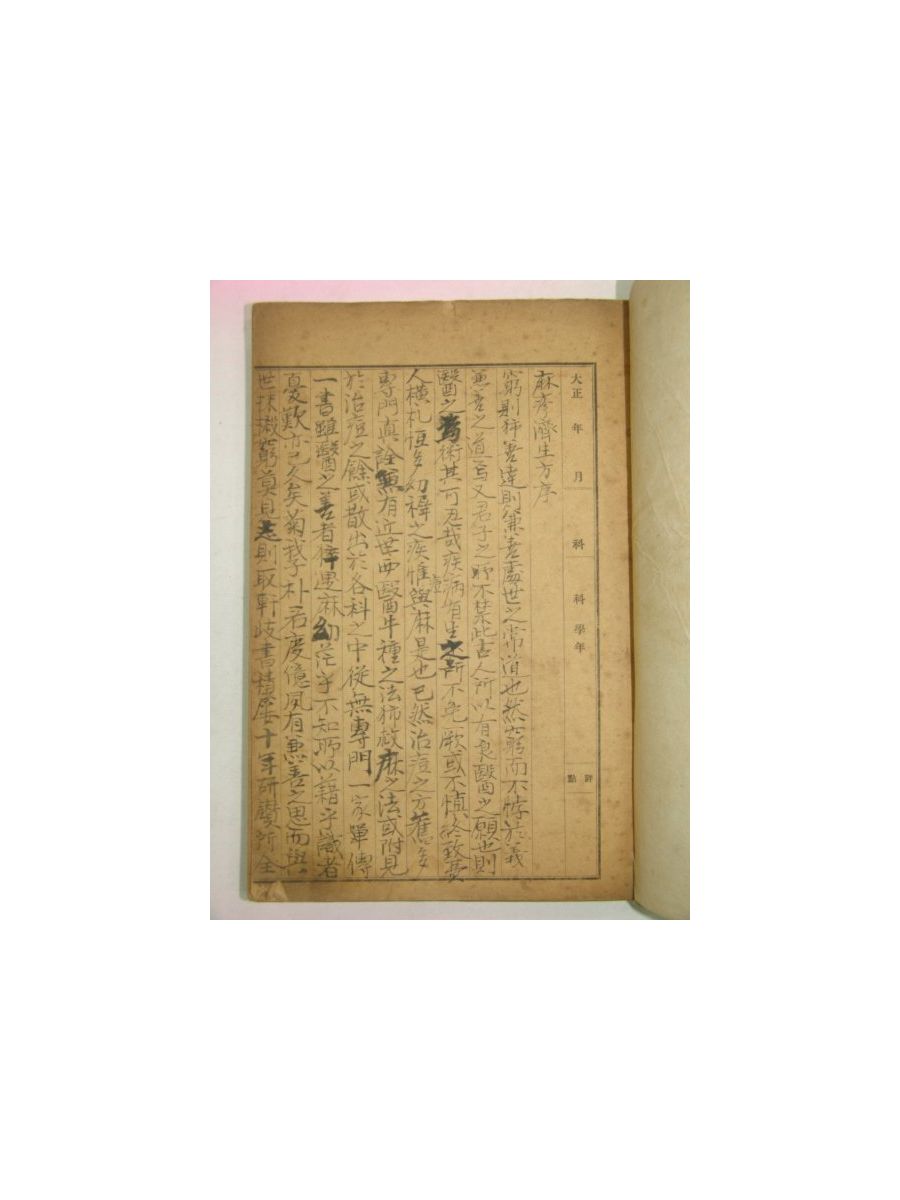 大正 年 月 科 科學年 評點
麻疹濟生方序
窮則獨善達則兼善處世之常道也然窮而不悖於義
兼善之道焉又君子之所不禁此古人所以有良醫之願也則
醫之爲術其可忽哉疾病有生之所不免厥或不愼終致喪
人橫札恒多幼穉之疾惟痘與麻是也已然治痘之方舊多
專門眞詮兼有近世西醫牛種之法獨救麻之法或附見
於治痘之餘或散出於各科之中從無專門一家單傳
一書雖醫之善者猝遇麻幼茫乎不知所以藉乎識者
憂歎亦已久矣菊我子朴君慶億夙有兼善之思而與
世抹摋窮莫見志則取軒岐書積屢十年研賾所全